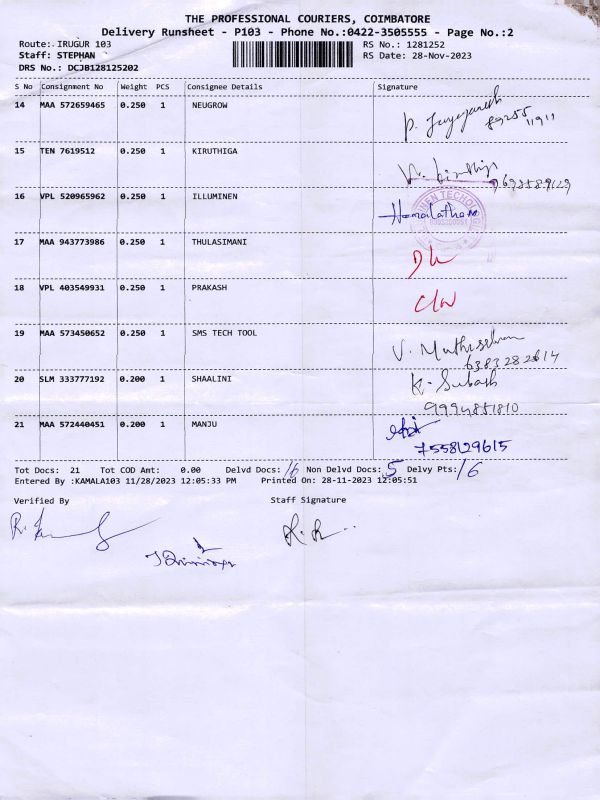 THE PROFESSIONAL COURIERS, COIMBATORE
Delivery Runsheet - P103 - Phone No.:0422-3505555 - Page No.:2
Route: IRUGUR 103 RS No.: 1281252
Staff: STEPHAN RS Date: 28-Nov-2023
DRS No.: DCJB128125202
S No Consignment No Weight PCS Consignee Details Signature
14 MAA 572659465 0.250 1 NEUGROW
15 TEN 7619512 0.250 1 KIRUTHIGA
16 VPL 520965962 0.250 1 ILLUMINEN Hemalatha
17 MAA 943773986 0.250 1 THULASIMANI
18 VPL 403549931 0.250 1 PRAKASH
19 MAA 573450652 0.250 1 SMS TECH TOOL V. Muthuselvan
6383282614
20 SLM 333777192 0.200 1 SHAALINI K. Subash
9994851810
21 MAA 572440451 0.200 1 MANJU
7558129615
Tot Docs: 21 Tot COD Amt: 0.00 Delvd Docs: 16 Non Delvd Docs: 5 Delvy Pts: 16
Entered By :KAMALA103 11/28/2023 12:05:33 PM Printed On: 28-11-2023 12:05:51
Verified By Staff Signature